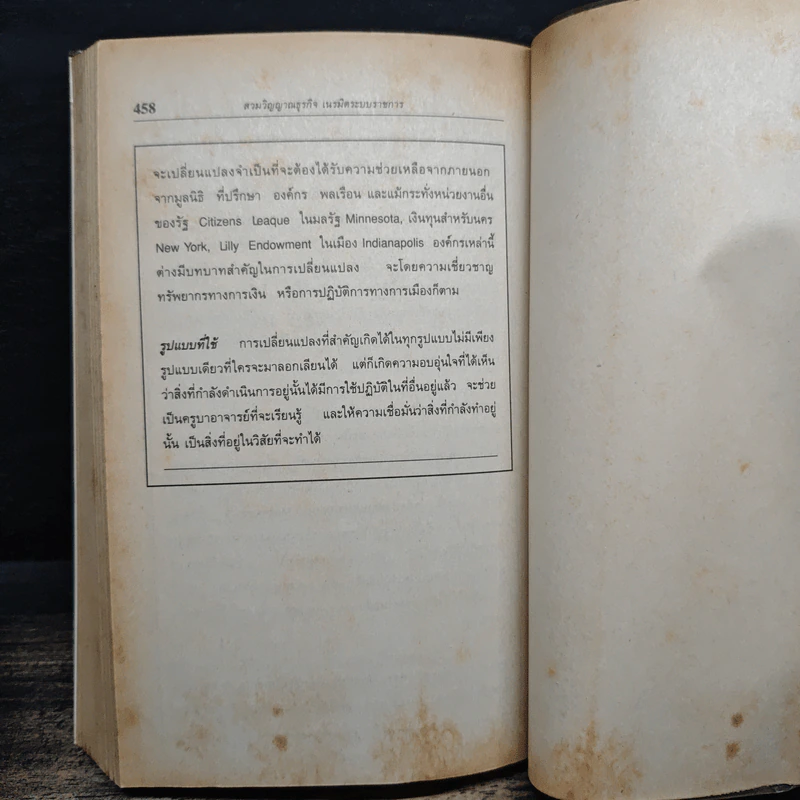 458
สวมวิญญาณธุรกิจ เนรมิตระบบราชการ
จะเปลี่ยนแปลงจำเป็นที่จะต้องได้รับความช่วยเหลือจากภายนอก
จากมูลนิธิ ที่ปรึกษา องค์กร พลเรือน และแม้กระทั่งหน่วยงานอื่น
ของรัฐ Citizens Leaque ในมลรัฐ Minnesota, เงินทุนสำหรับนคร
New York, Lilly Endowment ในเมือง Indianapolis องค์กรเหล่านี้
ต่างมีบทบาทสำคัญในการเปลี่ยนแปลง จะโดยความเชี่ยวชาญ
ทรัพยากรทางการเงิน หรือการปฏิบัติการทางการเมืองก็ตาม
รูปแบบที่ใช้ การเปลี่ยนแปลงที่สำคัญเกิดได้ในทุกรูปแบบไม่มีเพียง
รูปแบบเดียวที่ใครจะมาลอกเลียนได้ แต่ก็เกิดความอบอุ่นใจที่ได้เห็น
ว่าสิ่งที่กำลังดำเนินการอยู่นั้นได้มีการใช้ปฏิบัติในที่อื่นอยู่แล้ว จะช่วย
เป็นครูบาอาจารย์ที่จะเรียนรู้ และให้ความเชื่อมั่นว่าสิ่งที่กำลังทำอยู่
นั้น เป็นสิ่งที่อยู่ในวิสัยที่จะทำได้